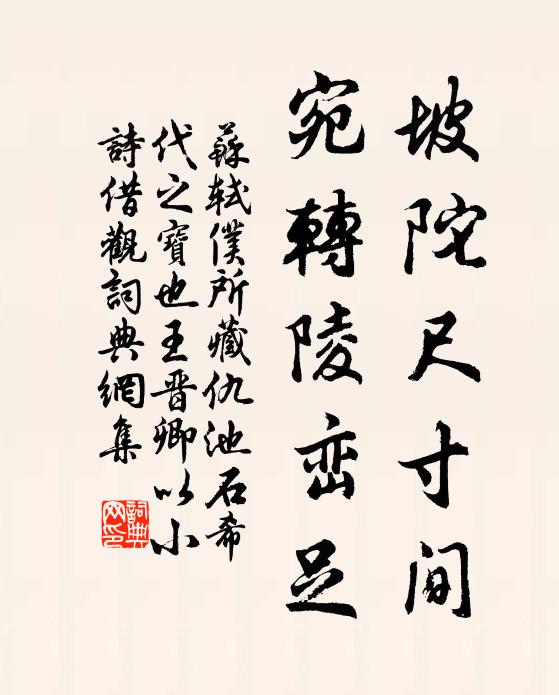 坡陀尺寸间
宛轉陵峦足
蘇軾僕所藏仇池石希
代之寶也王晋卿以小
詩借觀詞典網集
詞典网印